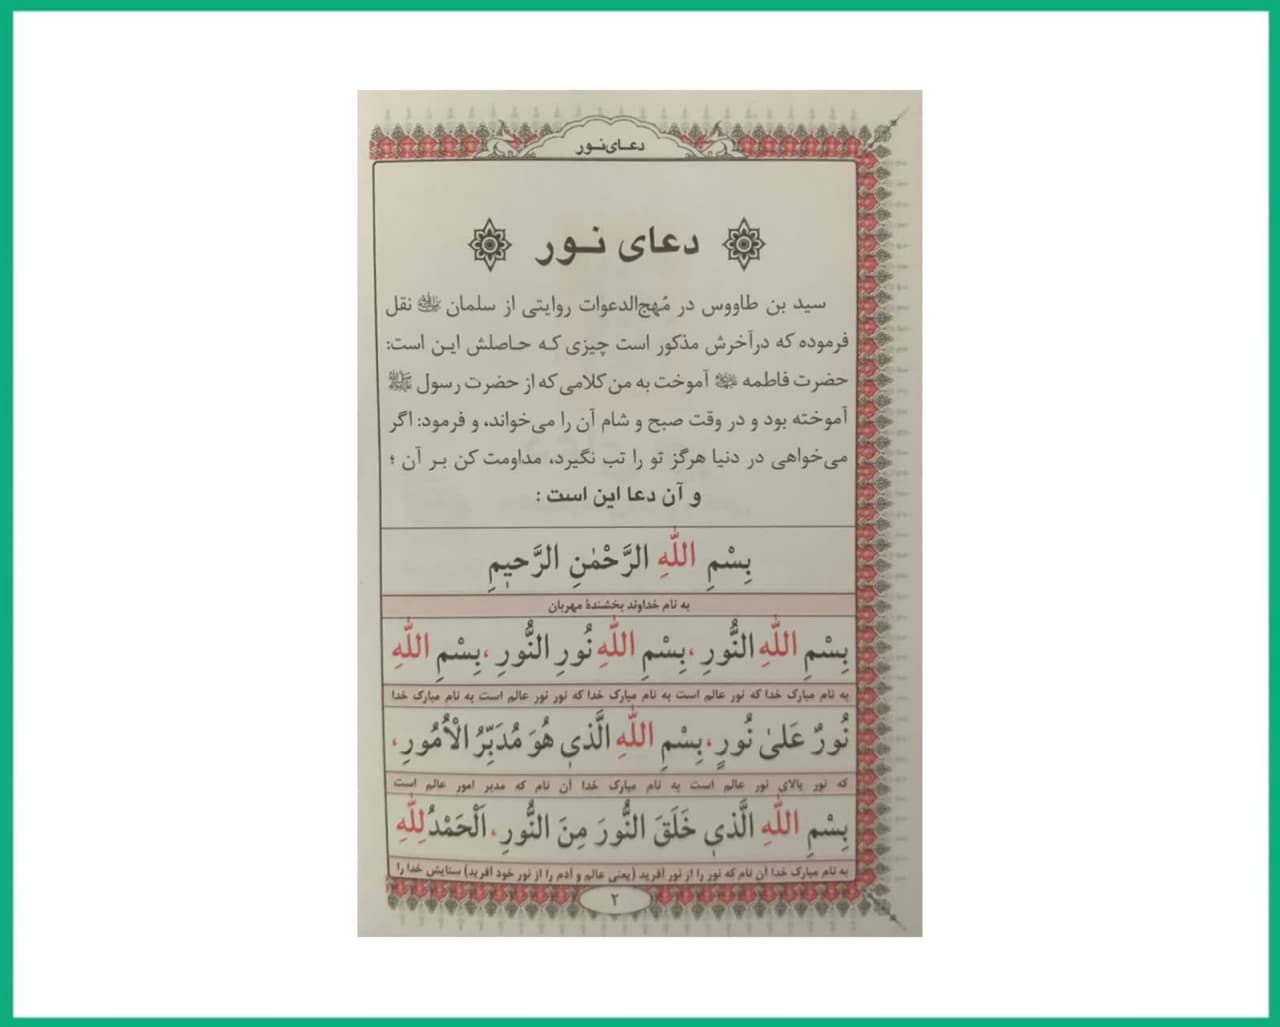 دعـای‌نـور
دعای نـور
سید بن طاووس در مُهج‌الدعوات روایتی از سلمان نقل
فرموده که درآخرش مذکور است چیزی کـه حـاصلش ایـن است:
حضرت فاطمه آموخت به من کلامی که از حضرت رسول ﷺ
آموخته بود و در وقت صبح و شام آن را می‌خواند، و فرمود: اگر
می‌خواهی در دنیا هرگز تو را تب نگیرد، مداومت کن بـر آن ؛
و آن دعا این است :
بِسْمِ اللّٰهِ الرَّحْمٰنِ الرَّحیٖمِ
به نام خداوند بخشندهٔ مهربان
بِسْمِ اللّٰهِ النُّورِ، بِسْمِ اللّٰهِ نُورِ النُّورِ، بِسْمِ اللّٰهِ
به نام مبارک خدا که نور عالم است به نام مبارک خدا که نور نور عالم است به نام مبارک خدا
نُورٌ عَلیٰ نُورٍ، بِسْمِ اللّٰهِ الَّذیٖ هُوَ مُدَبِّرُ الْاُمُورِ،
که نور بالای نور عالم است به نام مبارک خدا آن نام که مدبر امور عالم است
بِسْمِ اللّٰهِ الَّذیٖ خَلَقَ النُّورَ مِنَ النُّورِ، اَلْحَمْدُ لِلّٰهِ
به نام مبارک خدا آن نام که نور را از نور آفرید (یعنی عالم و آدم را از نور خود آفرید) ستایش خدا را
۲